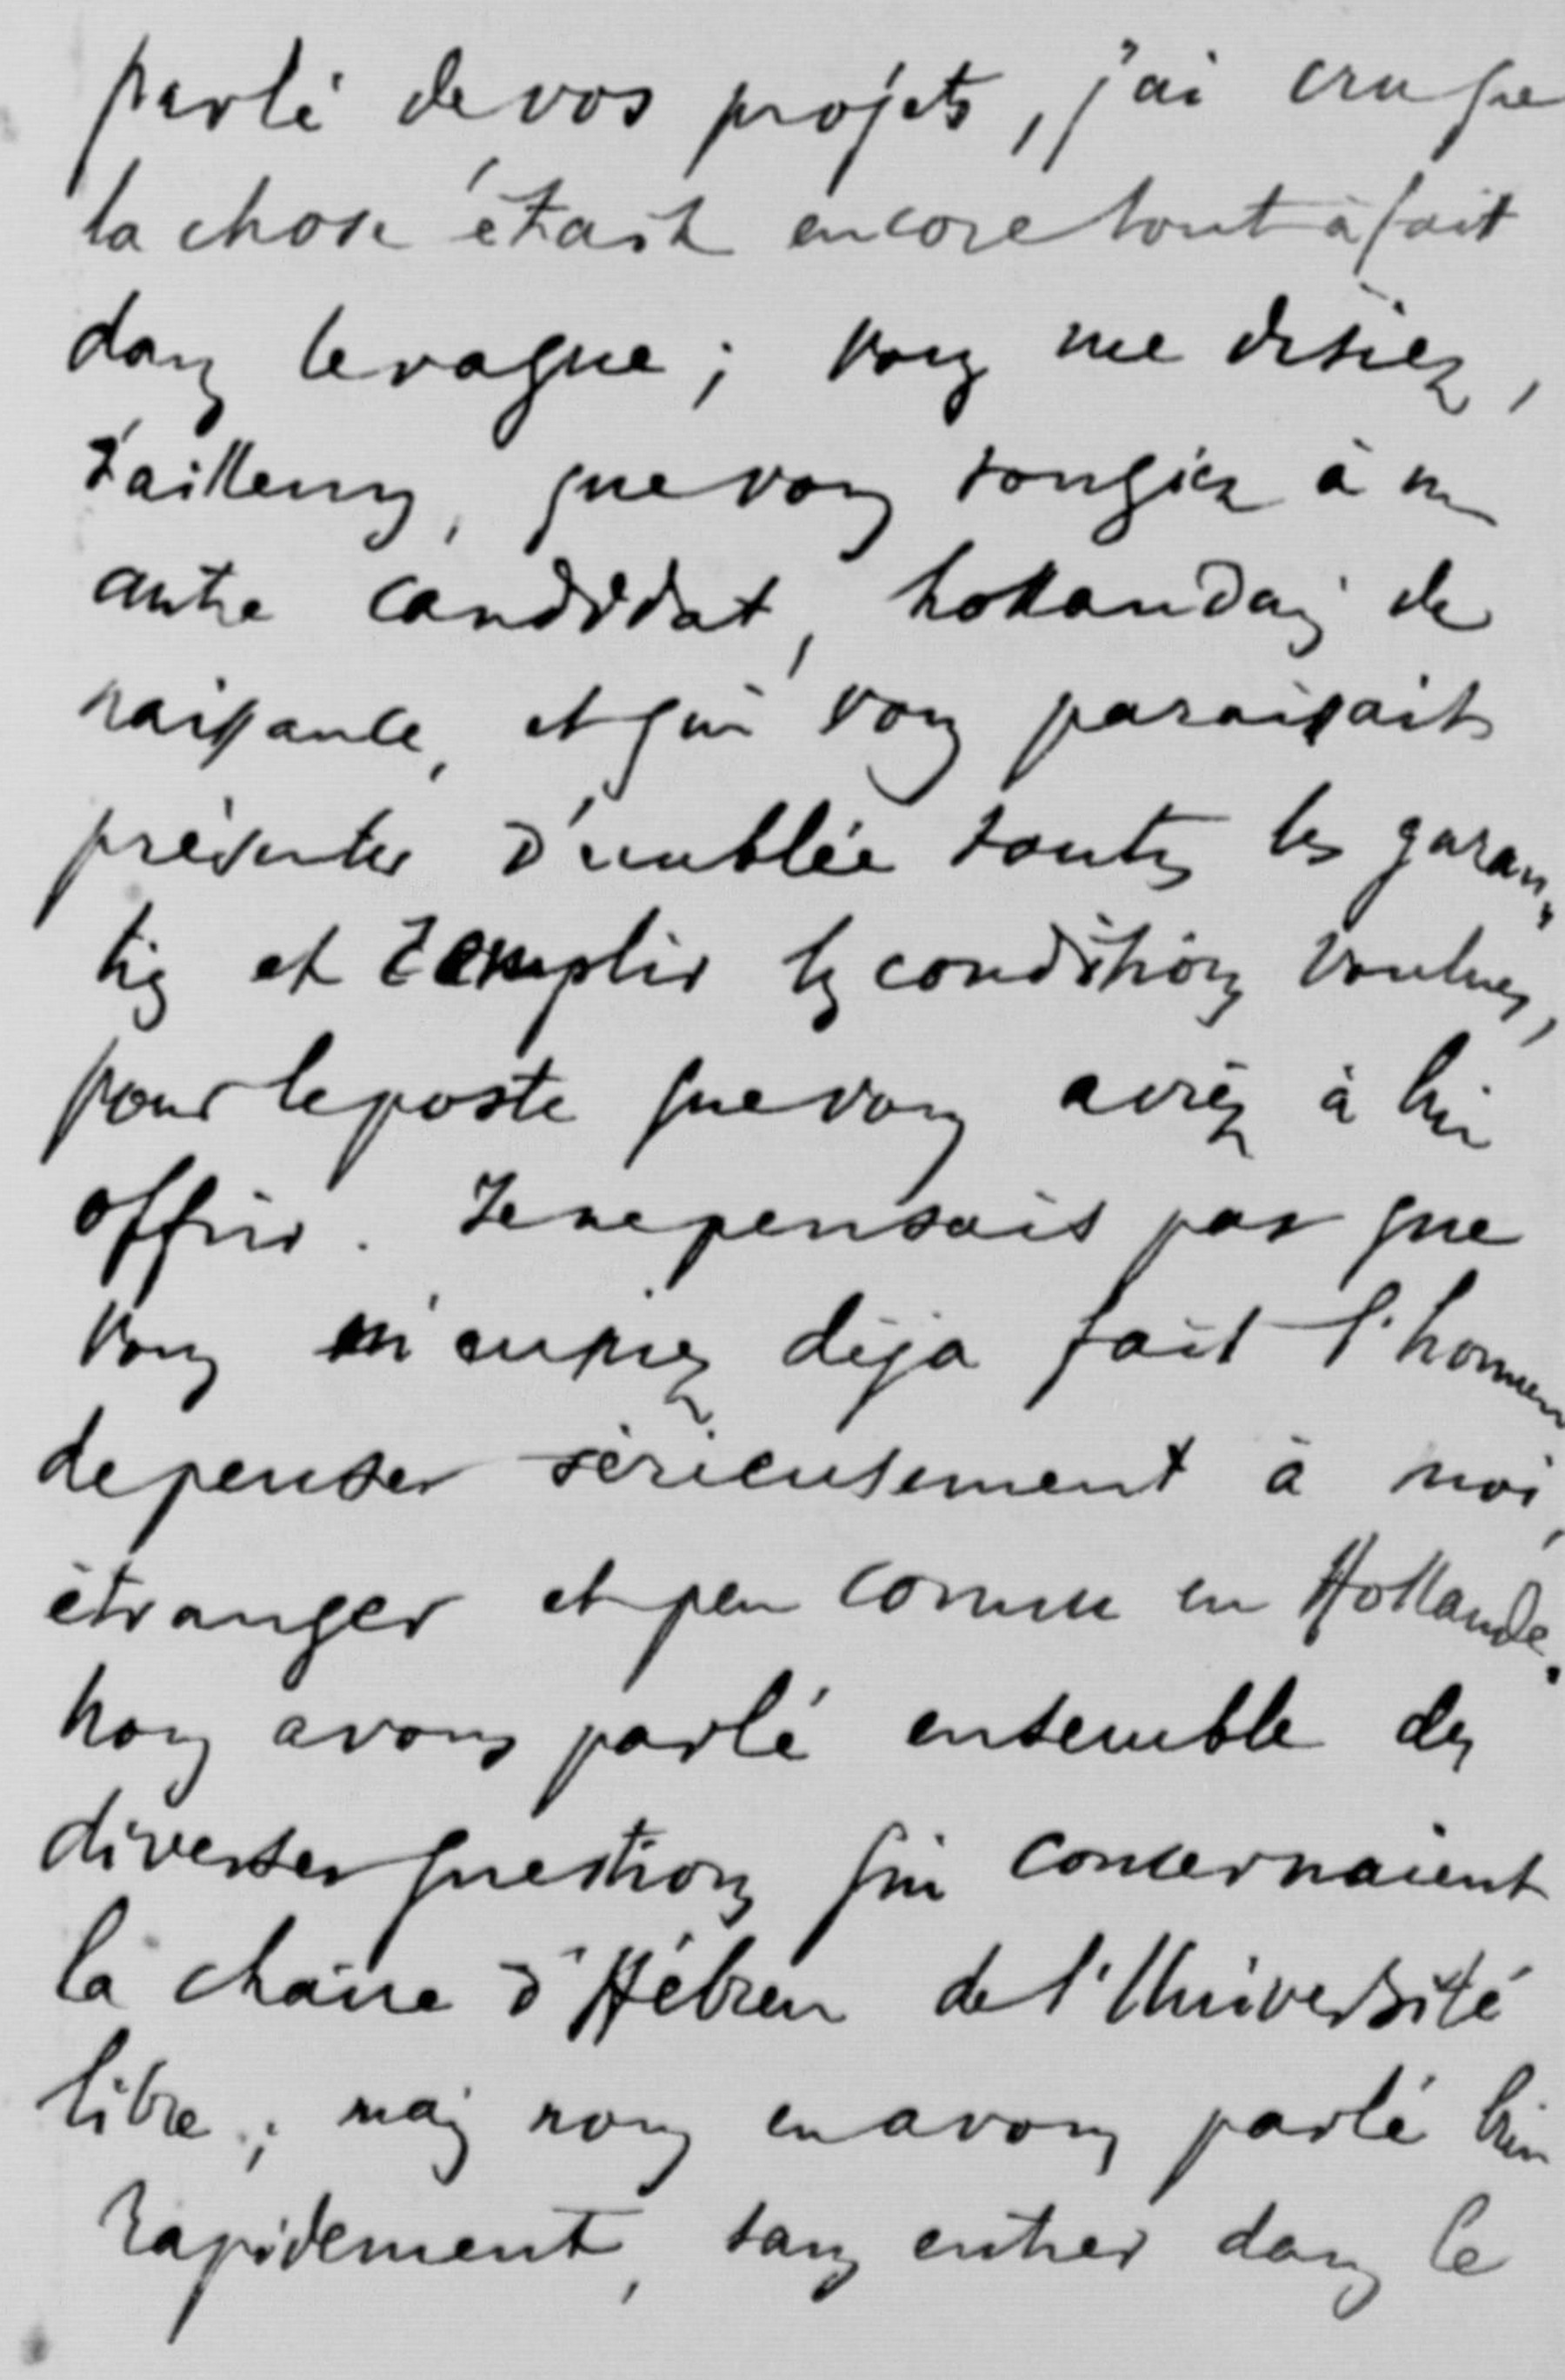 parlé de vos projets, j'ai cru que
la chose était encore tout à fait
dans le vague ; vous me disiez,
d'ailleurs, que vous songiez à un
autre candidat, hollandais de
naissance, et qui vous paraissait
présenter d'emblée toutes les garan-
ties et remplir les conditions voulues,
pour le poste que vous aviez à lui
offrir. Je ne pensais pas que
vous m'eussiez déjà fait l'honneur
de penser sérieusement à moi,
étranger et peu connu en Hollande.
Nous avons parlé ensemble des
diverses questions qui concernaient
la chaire d'Hébreu de l'Université
libre ; mais nous en avons parlé bien
rapidement, sans entrer dans le